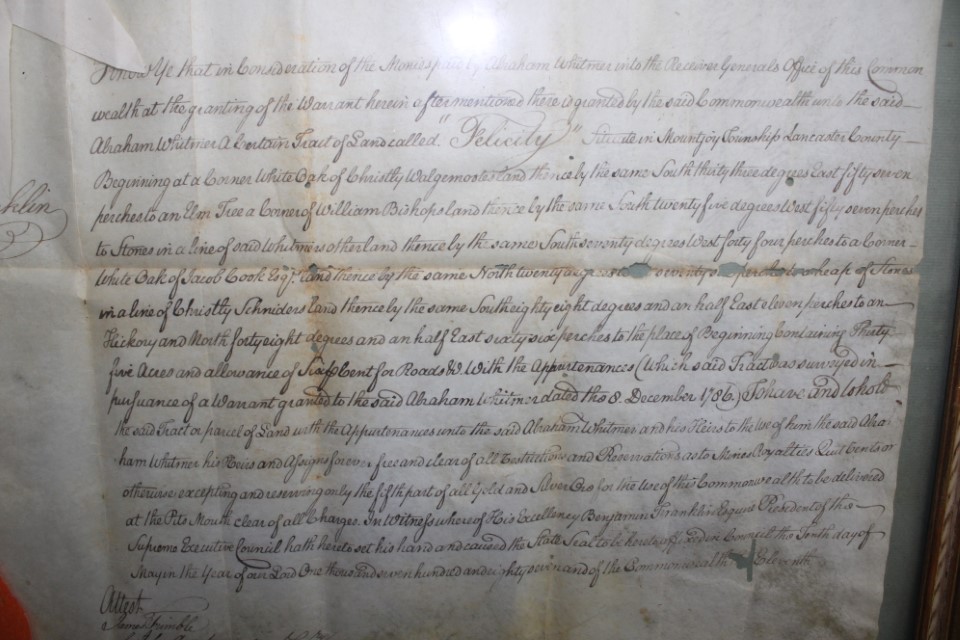 Know Ye that in Consideration of the Monies paid by Abraham Whitmer into the Receiver Generals Office of this Common
wealth at the granting of the Warrant herein after mentioned there is granted by the said Commonwealth unto the said
Abraham Whitmer A Certain Tract of Land called "Felicity" Situate in Mountjoy Township Lancaster County
Beginning at a Corner White Oak of Christly Walgemootes land thence by the same South thirty three degrees East fifty seven
perches to an Elm Tree a Corner of William Bishops land thence by the same South twenty five degrees West fifty seven perches
to Stones in a line of said Whitmers other land thence by the same South seventy degrees West forty four perches to a Corner
White Oak of Jacob Cook Esqr. land thence by the same North twenty degrees seventy perches to a heap of Stones
in a line of Christly Schniders land thence by the same South eighty eight degrees and an half East eleven perches to an
Hickory and North forty eight degrees and an half East sixty six perches to the place of Beginning Containing Thirty
five Acres and allowance of Six ⅌ Cent for Roads &c. With the Appurtenances (Which said Tract was surveyed in
pursuance of a Warrant granted to the said Abraham Whitmer dated the 8. December 1786.) To have and to hold
the said Tract or parcel of Land with the Appurtenances unto the said Abraham Whitmer and his Heirs to the Use of him the said Abra
ham Whitmer his Heirs and Assigns forever free and clear of all Restrictions and Reservations as to Mines Royalties Quit Rents or
otherwise excepting and reserving only the fifth part of all Gold and Silver Ore for the Use of this Commonwealth to be delivered
at the Pits Mouth clear of all Charges. In Witness whereof His Excellency Benjamin Franklin Esquire President of the
Supreme Executive Council hath hereto set his hand and caused the State Seal to be hereto affixed in Council this Tenth day of
May in the Year of our Lord One thousand seven hundred and eighty seven and of the Commonwealth Eleventh
Attest
James Trimble
klin